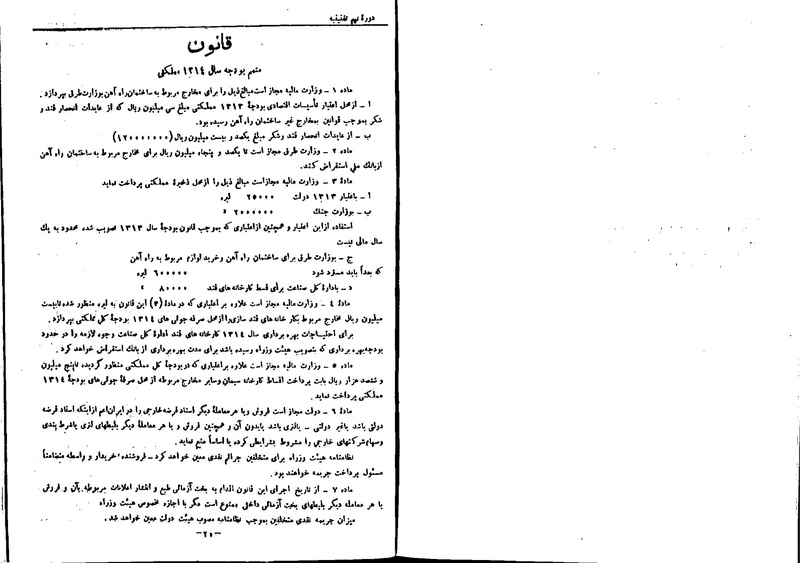 دورهٔ نهم تقنینیه
قانون
متمم بودجه سال ۱۳۱۴ مملکتی
ماده ۱ ـ وزارت مالیه مجاز است مبالغ ذیل را برای مخارج مربوط به ساختمان راه آهن بوزارت طرق بپردازد .
آ ـ از محل اعتبار تأسیسات اقتصادی بودجهٔ ۱۳۱۳ مملکتی مبلغ سی میلیون ریال که از عایدات انحصار قند و
شکر بموجب قوانین بمخارج غیر ساختمان راه آهن رسیده بود.
ب ـ از عایدات انحصار قند و شکر مبلغ یکصد و بیست میلیون ریال (۱۲۰۰۰۰۰۰۰)
مادهٔ ۲ ـ وزارت طرق مجاز است تا یکصد و پنجاه میلیون ریال برای مخارج مربوط به ساختمان راه آهن
از بانک ملی استقراض کند.
مادهٔ ۳ ـ وزارت مالیه مجاز است مبالغ ذیل را از محل ذخیرهٔ مملکتی پرداخت نماید
آ ـ باعتبار ۱۳۱۳ دولت ۲۵۰۰۰ لیره
ب ـ بوزارت جنگ ۲۰۰۰۰۰۰ »
استفاده از این اعتبار و همچنین از اعتباری که بموجب قانون بودجهٔ سال ۱۳۱۳ تصویب شده محدود به یک
سال مالی نیست
ج ـ بوزارت طرق برای ساختمان راه آهن و خرید لوازم مربوط به راه آهن
که بعداً باید مسترد شود ۶۰۰۰۰۰ لیره
د ـ بادارهٔ کل صناعت برای قسط کارخانه های قند ۸۰۰۰۰ »
مادهٔ ۴ ـ وزارت مالیه مجاز است علاوه بر اعتباری که در مادهٔ (۳) این قانون به لیره منظور شده تا بیست
میلیون ریال مخارج مربوط بکارخانه های قند سازی را از محل صرفه جوئی های ۱۳۱۴ بودجهٔ کل مملکتی بپردازد .
برای احتیاجات بهره برداری سال ۱۳۱۴ کارخانه های قند ادارهٔ کل صناعت وجوه لازمه را در حدود
بودجه بهره برداری که بتصویب هیئت وزراء رسیده باشد برای مدت بهره برداری از بانک استقراض خواهد کرد .
مادهٔ ۵ ـ وزارت مالیه مجاز است علاوه بر اعتباری که در بودجهٔ کل مملکتی منظور گردیده تا پنج میلیون
و ششصد هزار ریال بابت پرداخت اقساط کارخانه سیمان و سایر مخارج مربوطه از محل صرفهٔ جوئی های بودجهٔ ۱۳۱۴
مملکتی پرداخت نماید.
مادهٔ ۶ ـ دولت مجاز است فروش و یا هر معاملهٔ دیگر اسناد قرضه خارجی را در ایران اعم از اینکه اسناد قرضه
دولتی باشد یا غیر دولتی ـ بالفزی باشد یا بدون آن و همچنین فروش و یا هر معاملهٔ دیگر بلیطهای لزی یا شرط بندی
و سهام شرکتهای خارجی را مشروط بشرایطی کرده یا اساساً منع نماید.
نظامنامه هیئت وزراء برای متخلفین جرائم نقدی معین خواهد کرد ـ فروشنده، خریدار و واسطه متضامناً
مسئول پرداخت جریمه خواهند بود .
ماده ۷ ـ از تاریخ اجرای این قانون اقدام به بخت آزمائی طبع و انتشار اعلانات مربوطه بآن و فروش
یا هر معامله دیگر بلیطهای بخت آزمائی داخلی ممنوع است مگر با اجازه مخصوص هیئت وزراء
میزان جریمه نقدی متخلفین بموجب نظامنامه مصوب هیئت دولت معین خواهد شد .
ـ۲۰ـ